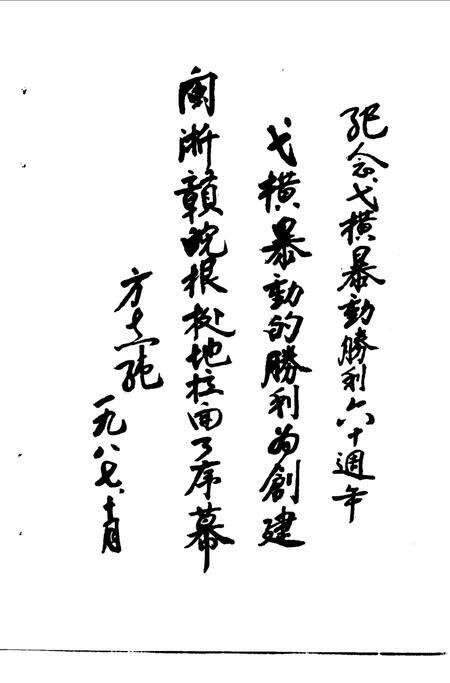 纪念弋横暴動勝利六十週年
弋横暴動的勝利为創建
闽浙赣皖根據地拉開了序幕
方志純
一九八七、十月